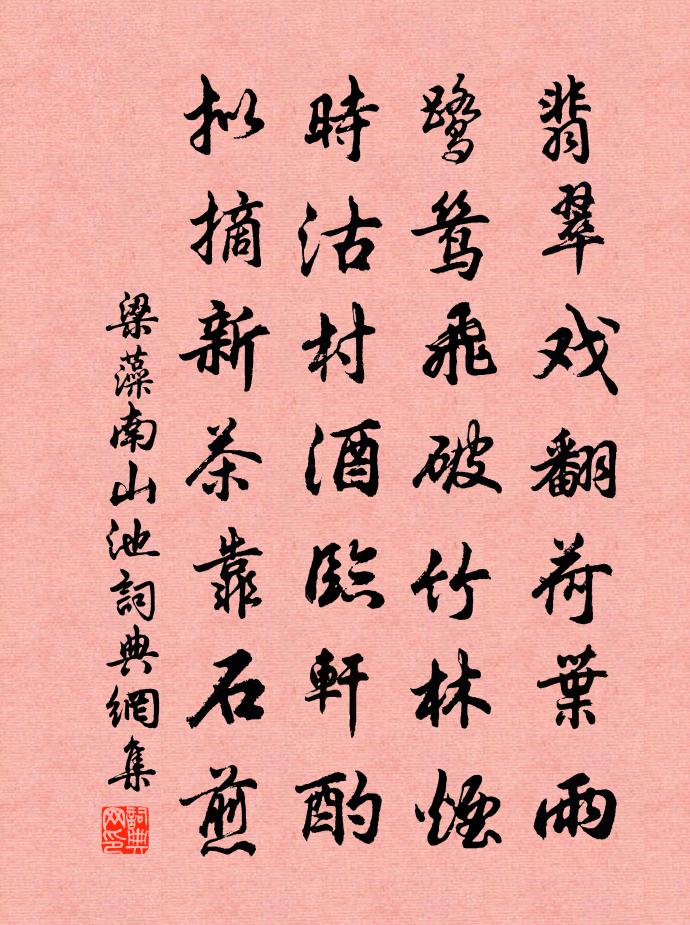 翡翠戏翻荷葉雨
鹭鸶飛破竹林煙
時沽村酒臨軒酌
拟摘新茶靠石煎
梁藻南山池詞典網集
詞典网印